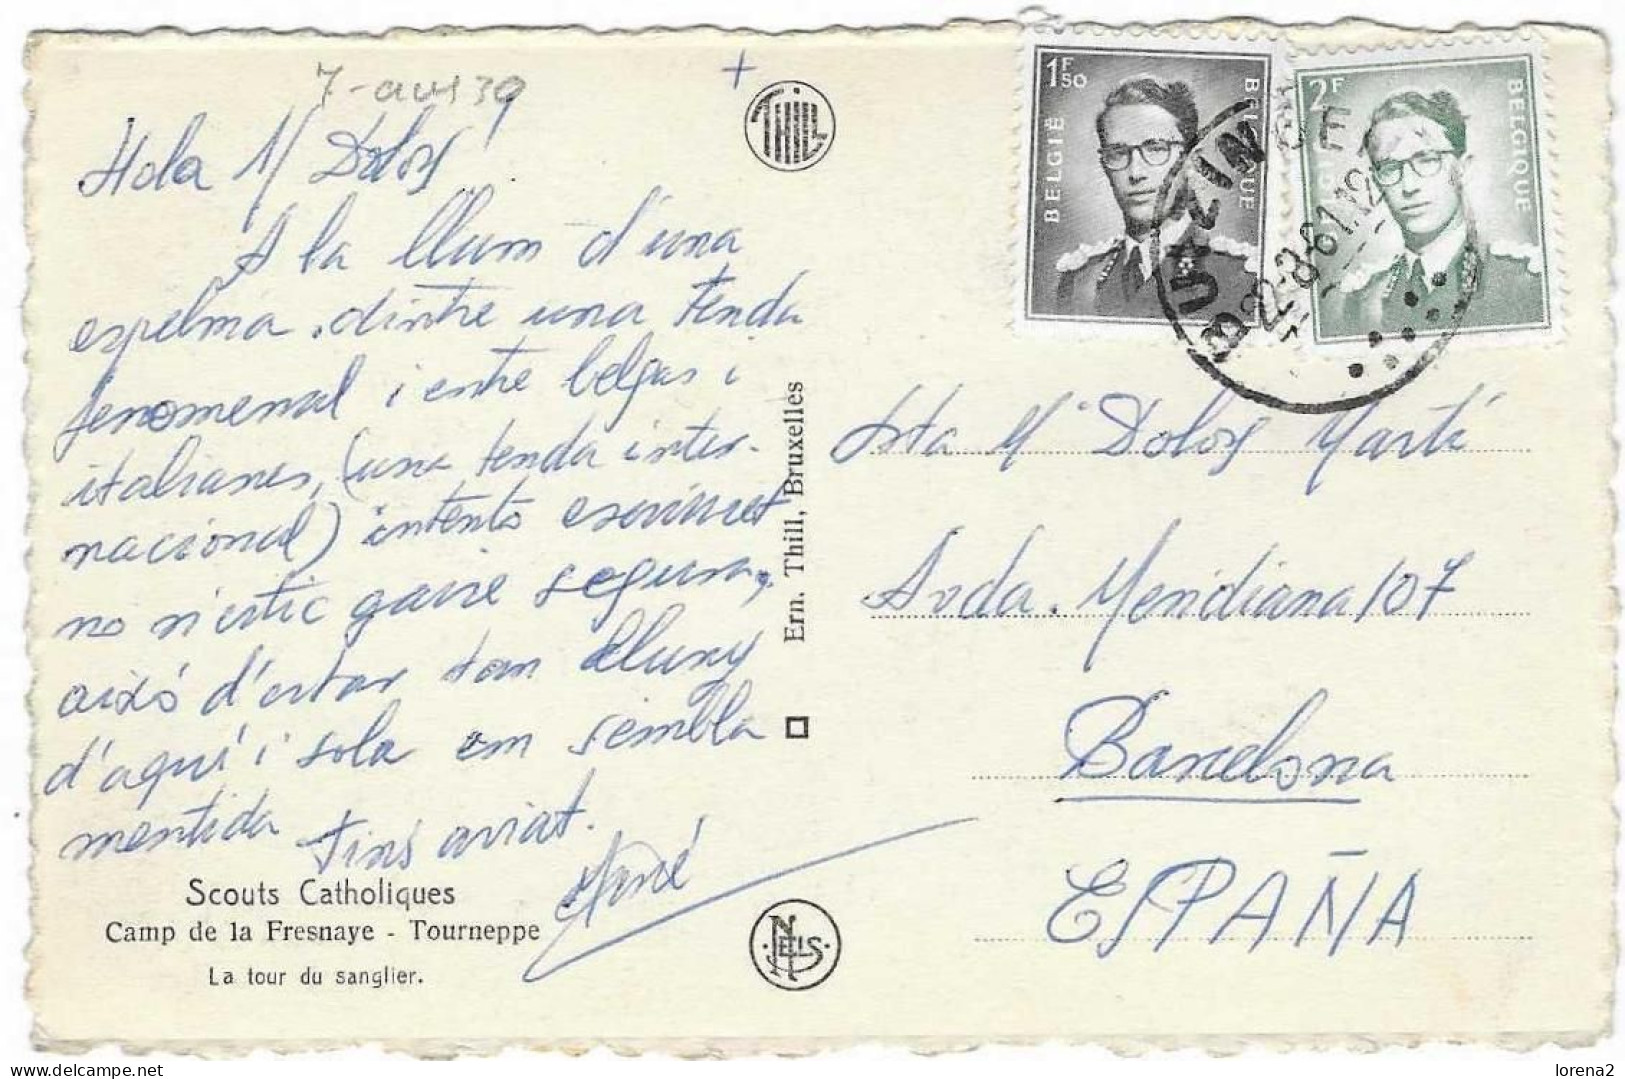 7-aus 39
Hola Mª Dolos
A la llum d'una
espelma, dintre una tenda
fenomenal i entre belgas i
italianes, (una tenda inter-
nacional) intento escriuret
no n'estic gaire segura,
aixó d'estar tan lluny
d'aquí i sola em sembla
mentida Fins aviat.
Scouts Catholiques
Camp de la Fresnaye - Tourneppe
La tour du sanglier.
THILL
Ern. Thill, Bruxelles
NELS
1F50
BELGIË
BELGIQUE
2F
BELGIQUE
BUIZINGE
22-8-61.12
Srta Mª Dolos Martí
Avda. Meridiana 107
Barcelona
ESPAÑA
delcampe.net
lorena2